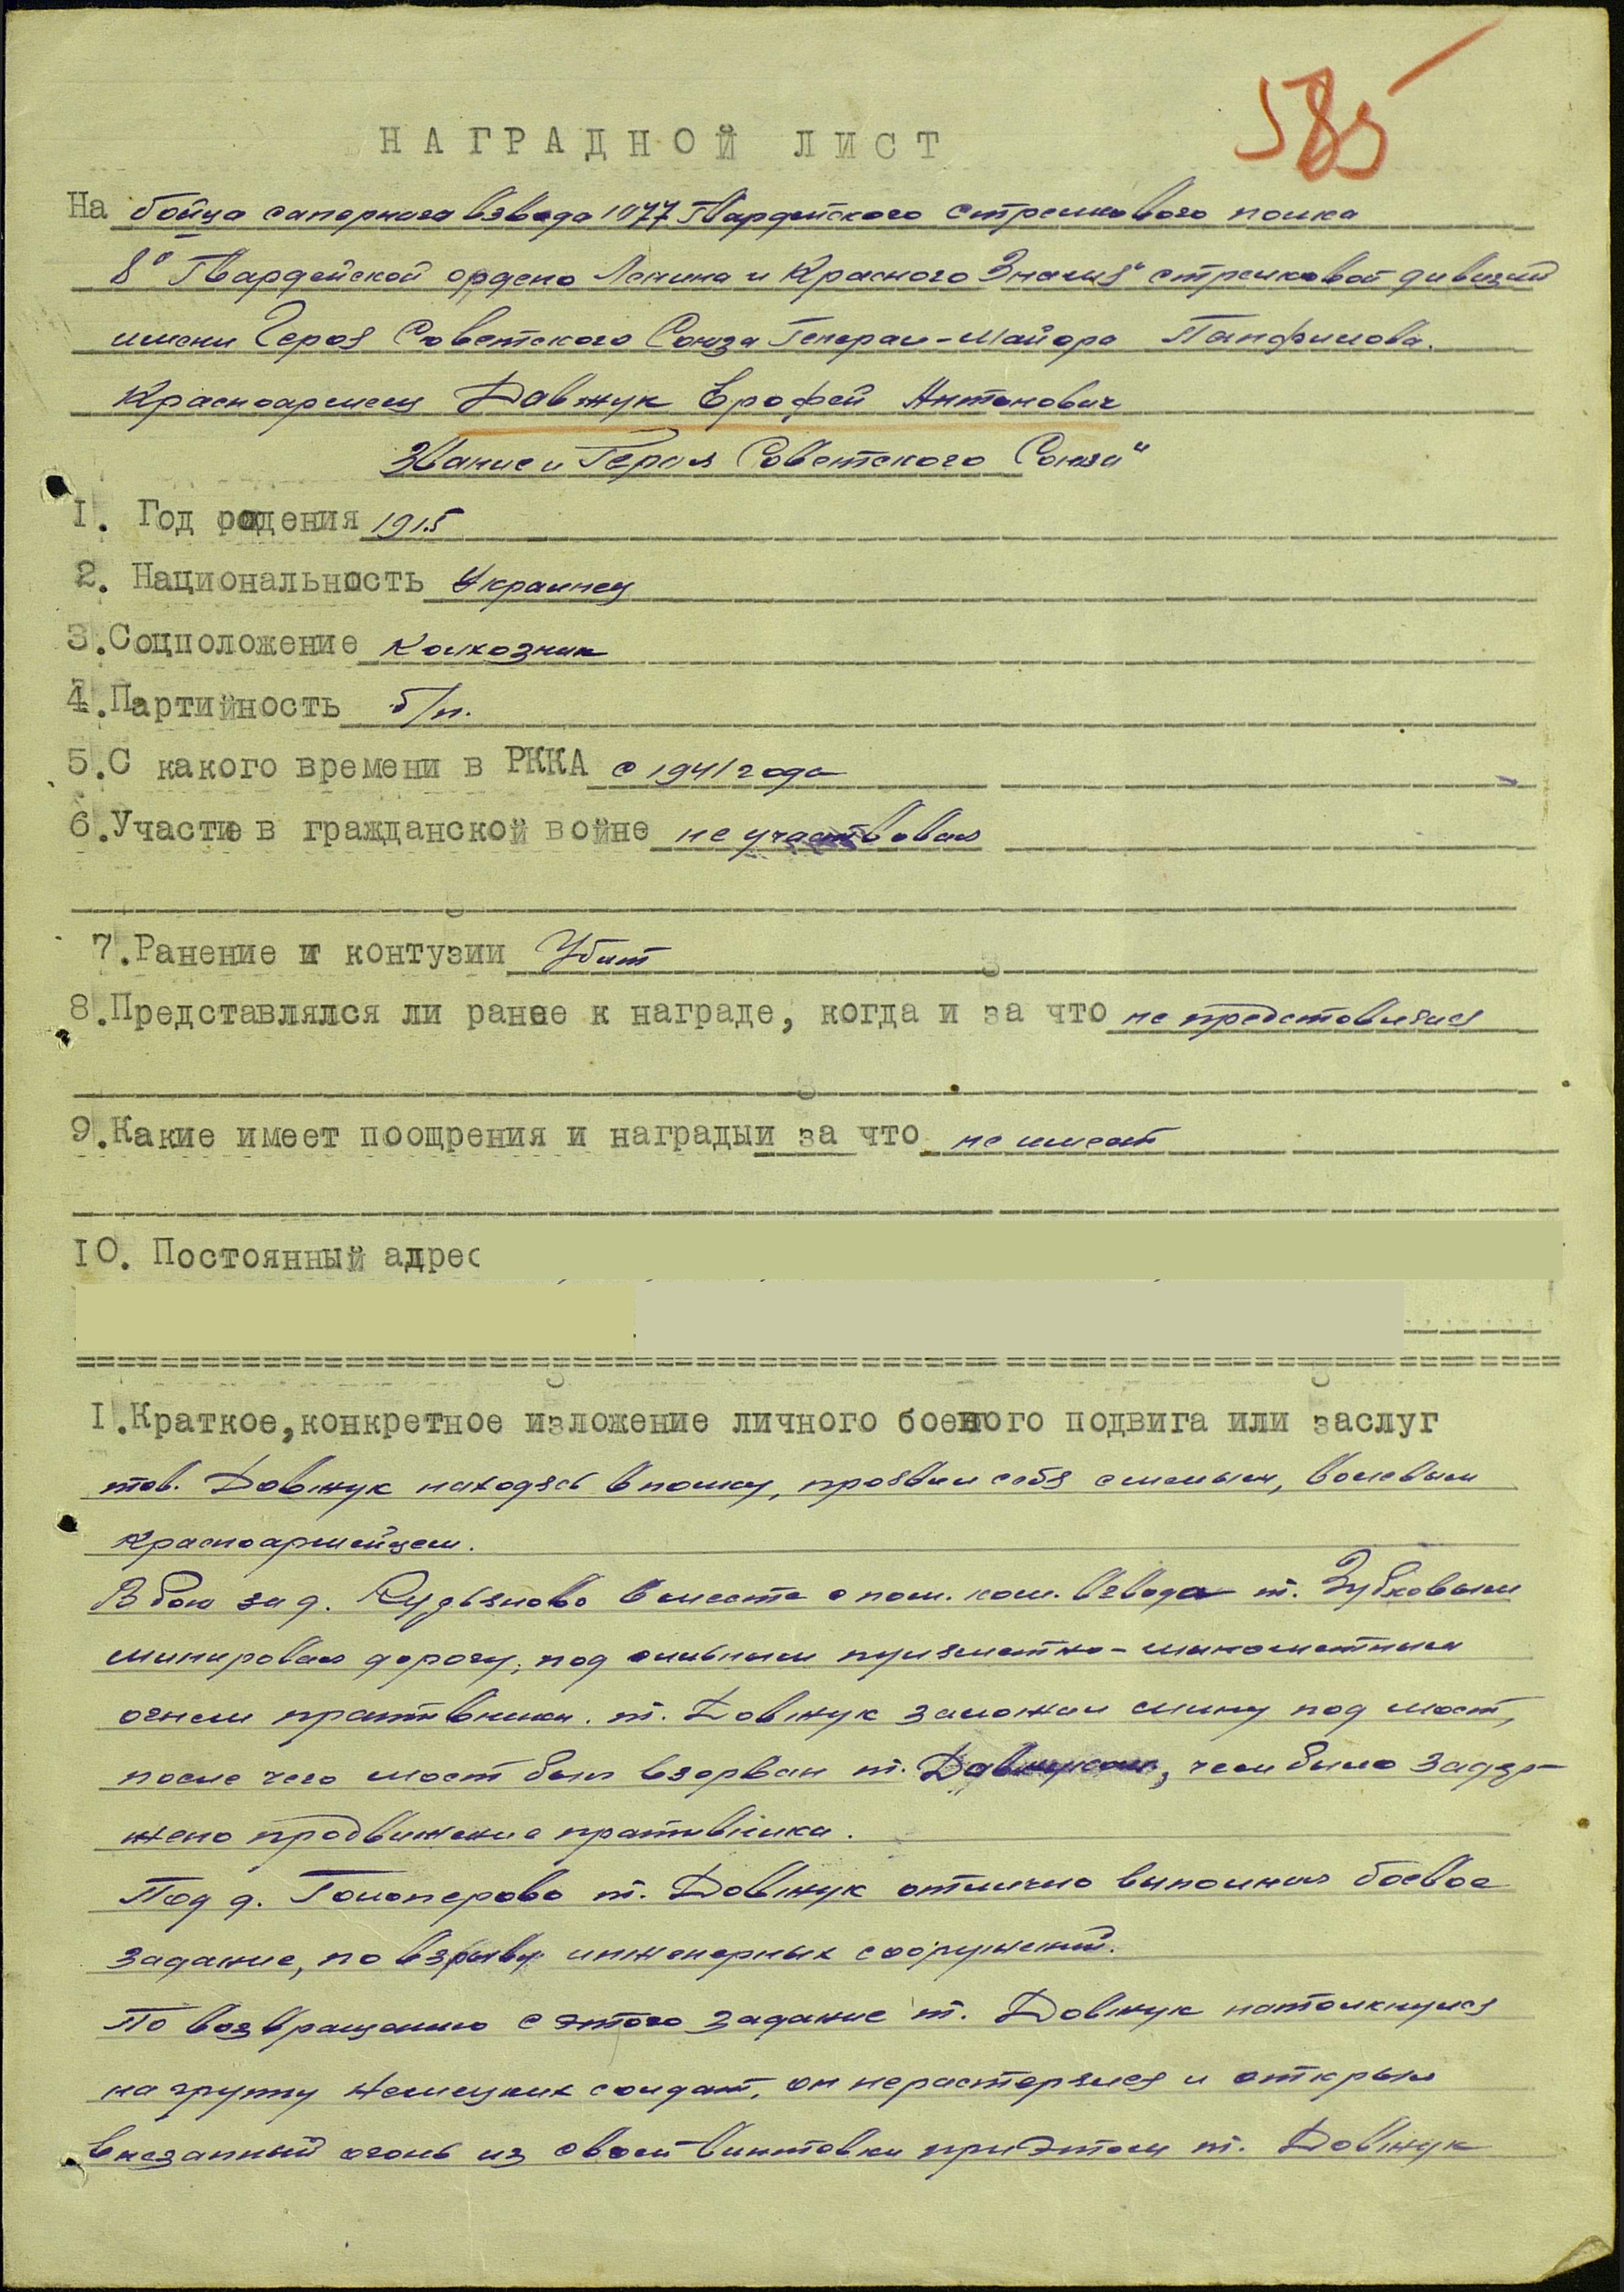 585
НАГРАДНОЙ ЛИСТ
На бойца саперного взвода 1077 Гвардейского стрелкового полка
8й Гвардейской ордена Ленина и Красного Знамя" стрелковой дивизии
имени Героя Советского Союза Генерал-Майора Панфилова.
Красноармеец Довжук Ерофей Антонович
Звание „Героя Советского Союза"
1. Год рождения 1915
2. Национальность Украинец
3.Соцположение Колхозник
4.Партийность б/п.
5.С какого времени в РККА с 1941 года
6.Участие в гражданской войне не участвовал
7.Ранение и контузии Убит
8.Представлялся ли ранее к награде, когда и за что не представлялся
9.Какие имеет поощрения и награды и за что не имеет
10. Постоянный адрес
I.Краткое,конкретное изложение личного боевого подвига или заслуг
тов. Довжук находясь в полку, проявил себя смелым, волевым
красноармейцем.
В бою за д. вместе с пом. ком. взвода т. Зубковым
минировал дорогу, под сильным пулеметно-минометным
огнем противника. т. Довжук заложил мину под мост,
после чего мост был взорван т. Довжуком, чем было задер-
жено продвижение противника.
Под д. Голоперово т. Довжук отлично выполнил боевое
задание, по взрыву инженерных сооружений.
По возвращению с этого задание т. Довжук натолкнулся
на группу немецких солдат, он нерастерялся и открыл
внезапный огонь из своей винтовки при этом т. Довжук